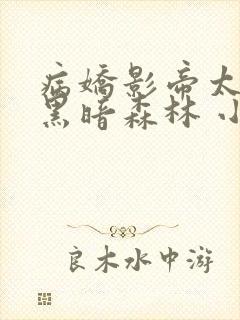 病嬌影帝太
黑暗森林 小
良木水中游